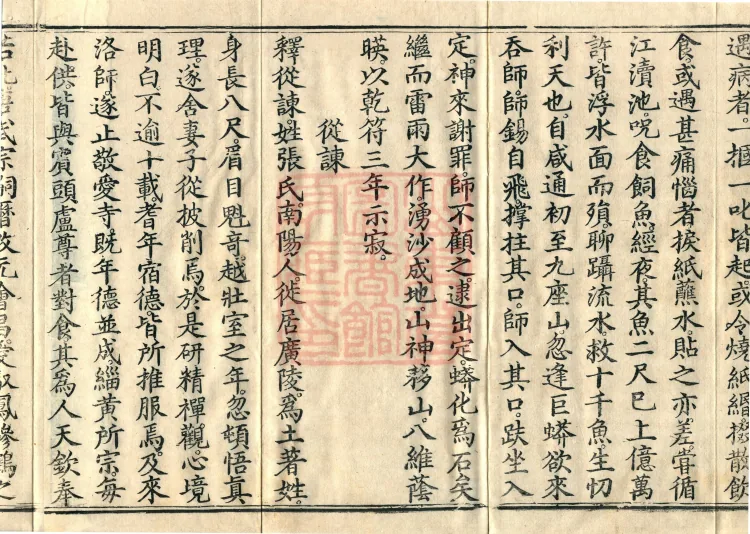 遇病者。一摑一叱皆起。或令燒紙緡掇散飲
食。或遇甚痛惱者捩紙蘸水。貼之亦差。甞循
江瀆池。呪食飼魚。經夜其魚二尺巳上億萬
許。皆浮水面而殞。聊躡流水。救十千魚生忉
利天也。自咸通初至九座山。忽逢巨蟒欲來
吞師。師錫自飛撑拄其口。師入其口。趺坐入
定。神來謝罪。師不顧之。逮出定。蟒化爲石矣。
繼而雷雨大作。湧沙成地。山神移山。八維蔭
暎。以乾符三年示寂。
從諫
釋從諫。姓張氏。南陽人。徙居廣陵。爲土著姓。
身長八尺。眉目魁奇。越壯室之年。忽頓悟眞
理。遂舍妻子從披削焉。於是研精禪觀。心境
明白。不逾十載。耆年宿德。皆所推服焉。及來
洛師。遂止敬愛寺。旣年德並成緇黄所宗。每
赴供。皆與賓頭盧尊者對食。其爲人天欽奉